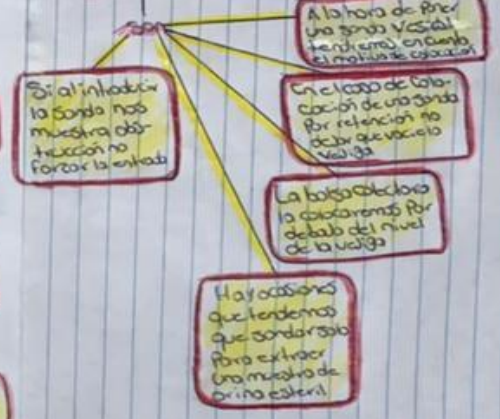 son
A la hora de Poner
una sonda vesical
tendremos en cuenta
el motivo de colocación
Si al introducir
la sonda nos
muestra obs-
trucción no
forzar la entrada
En el caso de Colo-
cación de una sonda
Por retención no
dejar que vacie la
vejiga
La bolsa colectora
la colocaremos Por
debajo del nivel
de la vejiga
Hay ocasiones
que tendemos
que sondar solo
Para extraer
una muestra de
orina esteril